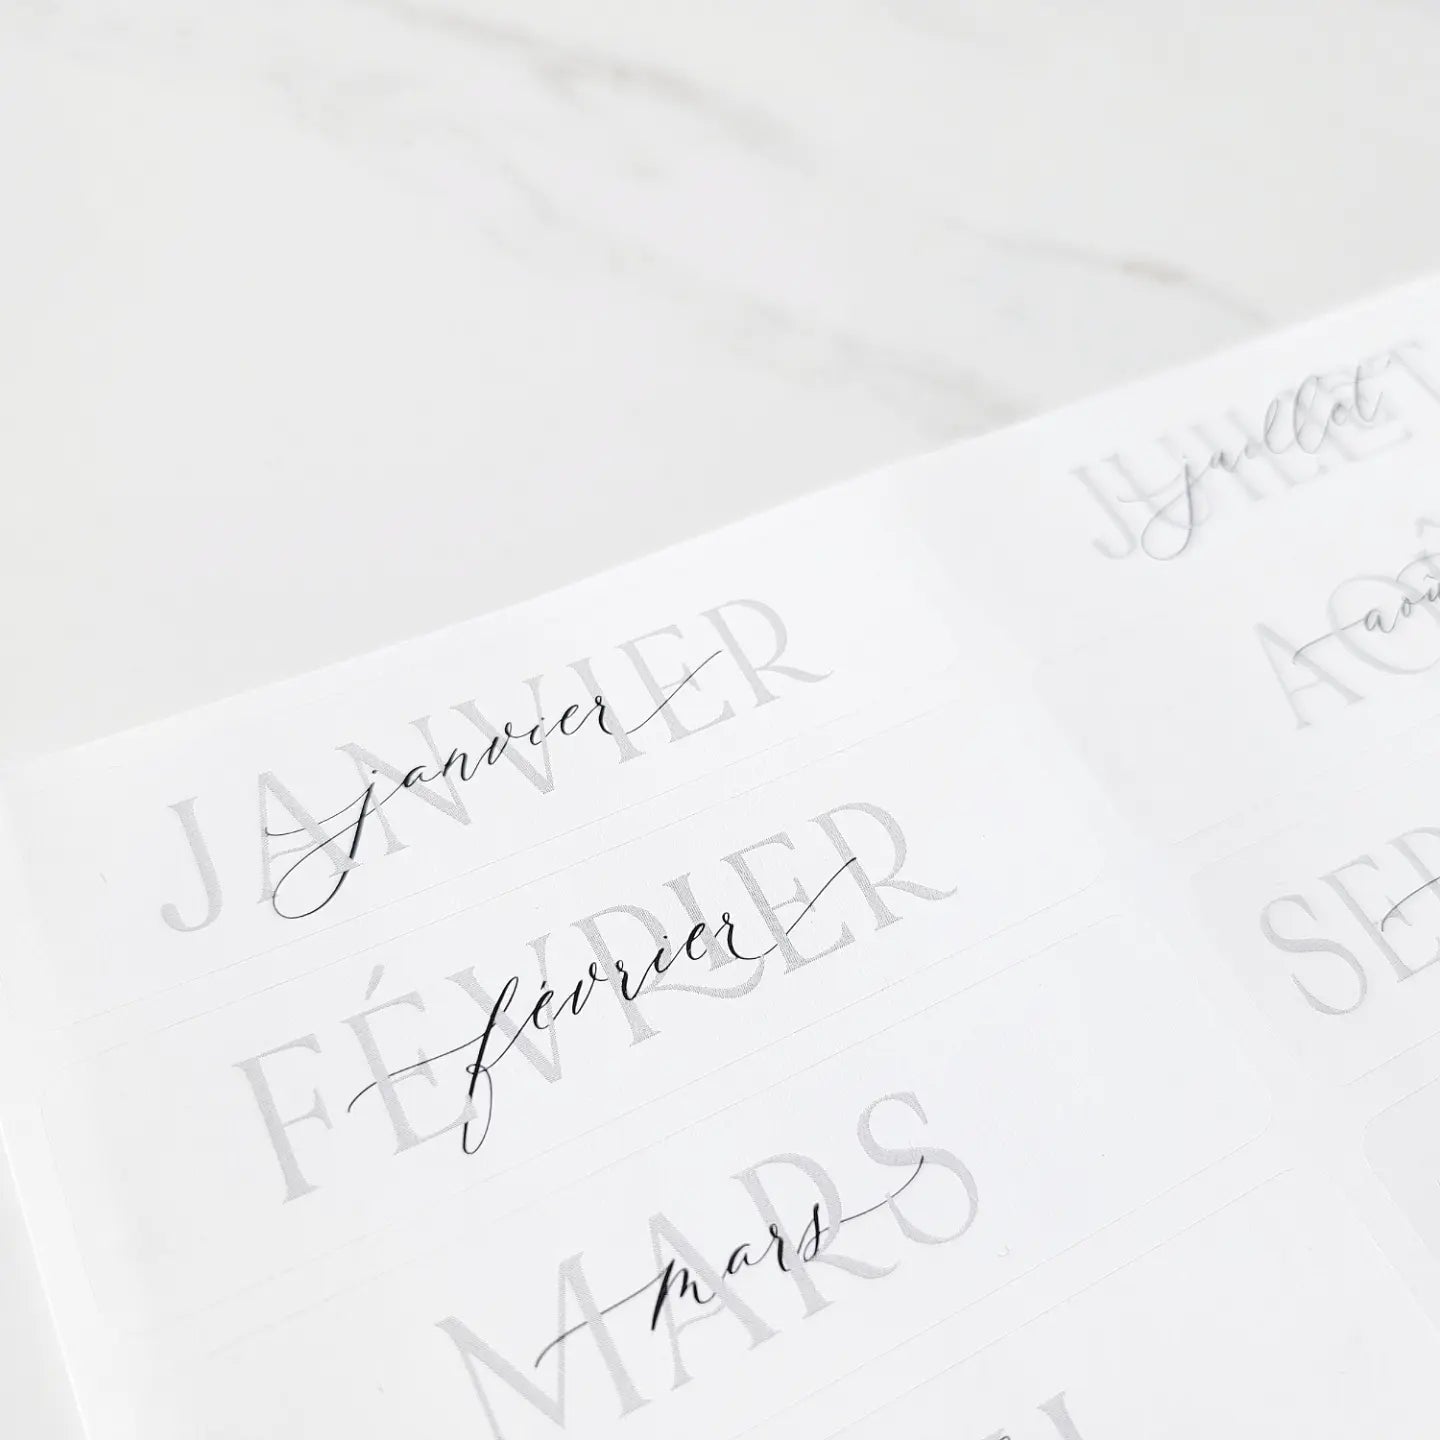 JANVIER
janvier
FÉVRIER
février
MARS
mars
JUILLET
juillet
AOÛ
aoû
SEP